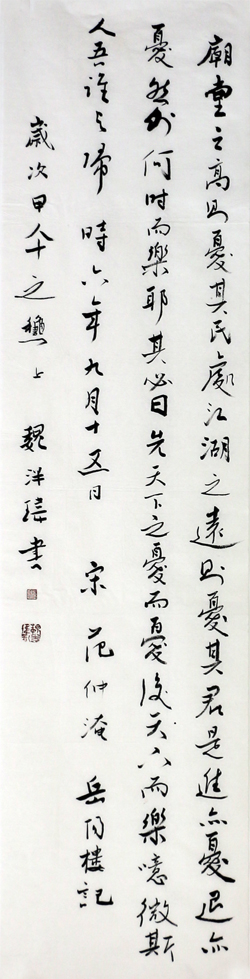 廟堂之高則憂其民處江湖之遠則憂其君是進亦憂退亦
憂然則何時而樂耶其必曰先天下之憂而憂後天下而樂噫微斯
人吾誰與歸 時六年九月十五日 宋 范仲淹 岳陽樓記
歲次甲午之 上 魏洋 書